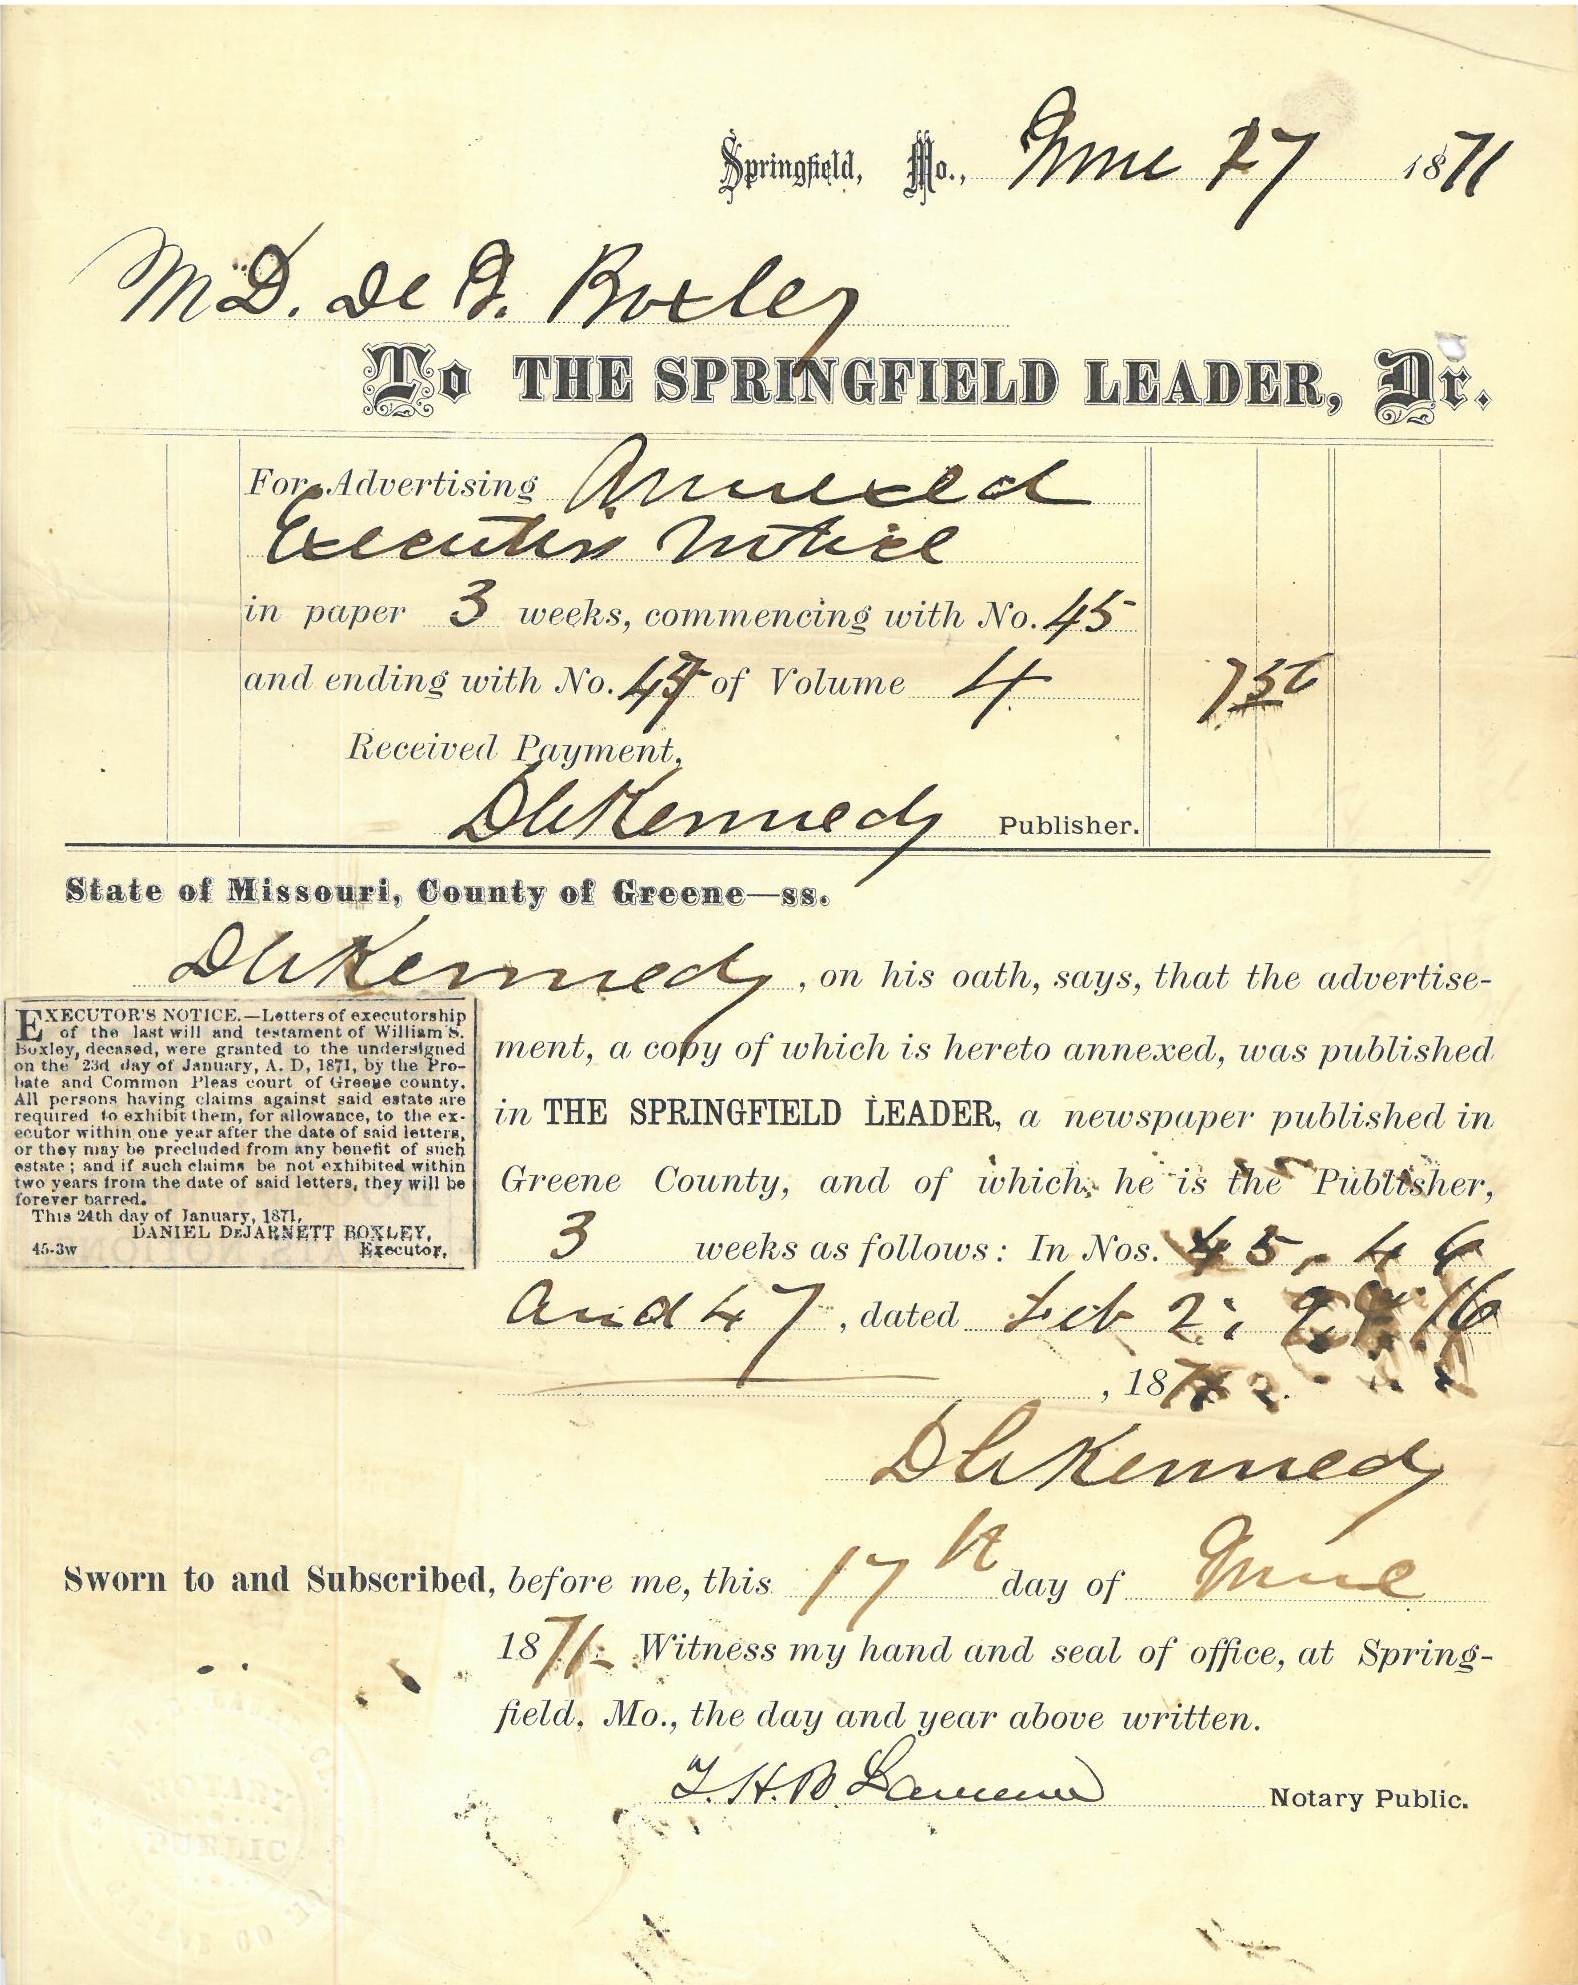 Springfield, Mo., June 27 1871
M D. De J. Boxley
To THE SPRINGFIELD LEADER, Dr.
For Advertising Annexed
Executors Notice
in paper 3 weeks, commencing with No. 45
and ending with No. 47 of Volume 4
7 50
Received Payment,
D C Kennedy Publisher.
State of Missouri, County of Greene—ss.
D C Kennedy, on his oath, says, that the advertise-
ment, a copy of which is hereto annexed, was published
in THE SPRINGFIELD LEADER, a newspaper published in
Greene County, and of which he is the Publisher,
3 weeks as follows: In Nos. 45, 46
and 47, dated Feb 2, 9, 16
, 187
D C Kennedy
EXECUTOR'S NOTICE.—Letters of executorship
of the last will and testament of William S.
Boxley, deceased, were granted to the undersigned
on the 23d day of January, A. D, 1871, by the Pro-
bate and Common Pleas court of Greene county.
All persons having claims against said estate are
required to exhibit them, for allowance, to the ex-
ecutor within one year after the date of said letters,
or they may be precluded from any benefit of such
estate; and if such claims be not exhibited within
two years from the date of said letters, they will be
forever barred.
This 24th day of January, 1871,
DANIEL DEJARNETT BOXLEY,
45-3w Executor,
Sworn to and Subscribed, before me, this 17th day of June
1871. Witness my hand and seal of office, at Spring-
field, Mo., the day and year above written.
T. H. B. Notary Public.
NOTARY
PUBLIC